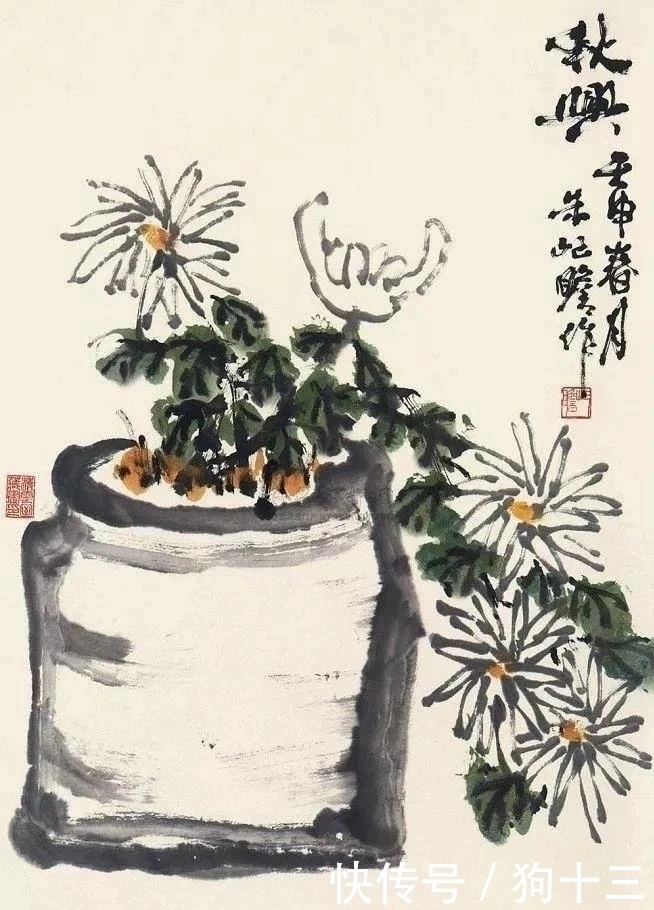 秋興
壬申春月
朱屺瞻作
快传号 / 狗十三